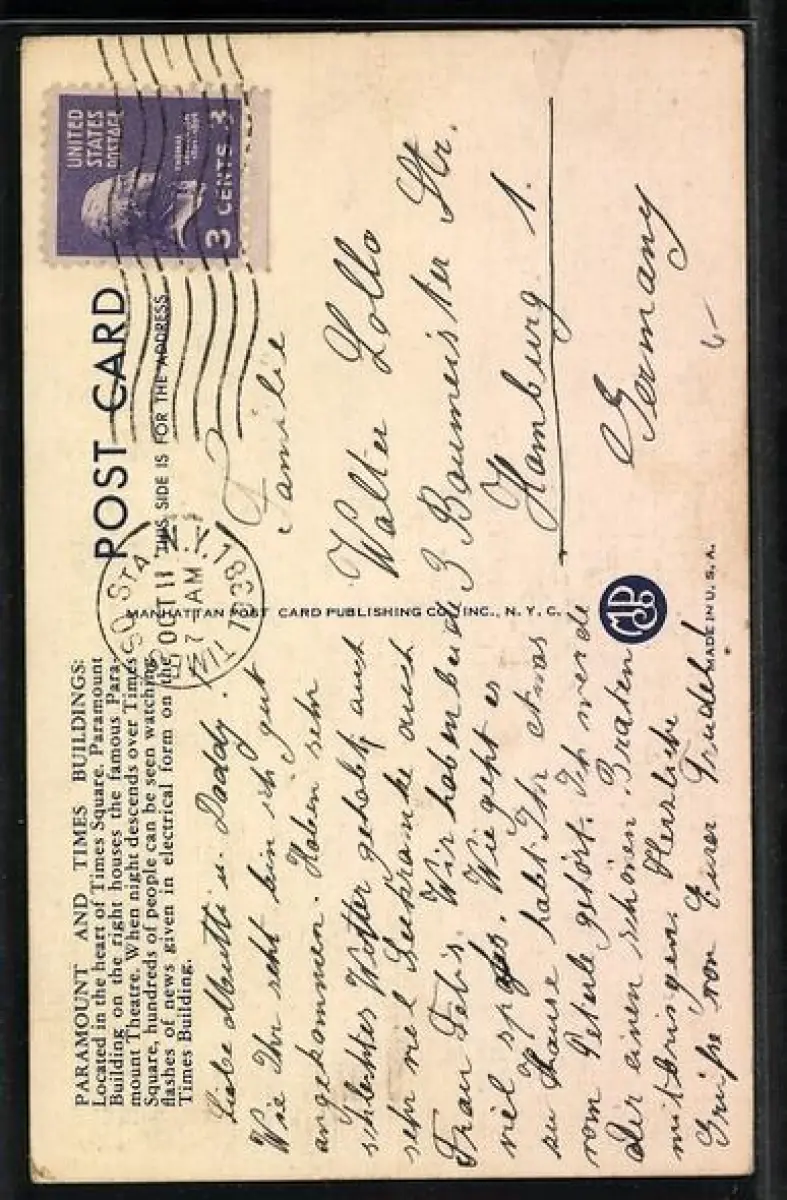 PARAMOUNT AND TIMES BUILDINGS:
Located in the heart of Times Square. Paramount
Building on the right houses the famous Para-
mount Theatre. When night descends over Times
Square, hundreds of people can be seen watching
flashes of news given in electrical form on the
Times Building.
Liebe Mutti u. Daddy.
Wie Ihr seht bin ich gut
angekommen. Haben sehr
schlechtes Wetter gehabt, auch
sehr viel Seekranke auch
Frau Wir haben beide
viel Wie geht es
zu Hause habt Ihr etwas
vom gehört. Ich werde
Dir einen schönen Braten
mitbringen. Herzliche
Grüße von Eurer Trudel
MANHATTAN POST CARD PUBLISHING CO., INC., N. Y. C.
POST CARD
THIS SIDE IS FOR THE ADDRESS
UNITED
STATES
POSTAGE
THOMAS
3 CENTS 3
TIMES SQ. STA.
N.Y. 18
OCT 11
7 AM
Familie
Walter Lollo
3 Baumeister Str.
Hamburg 1.
Germany
MADE IN U. S. A.